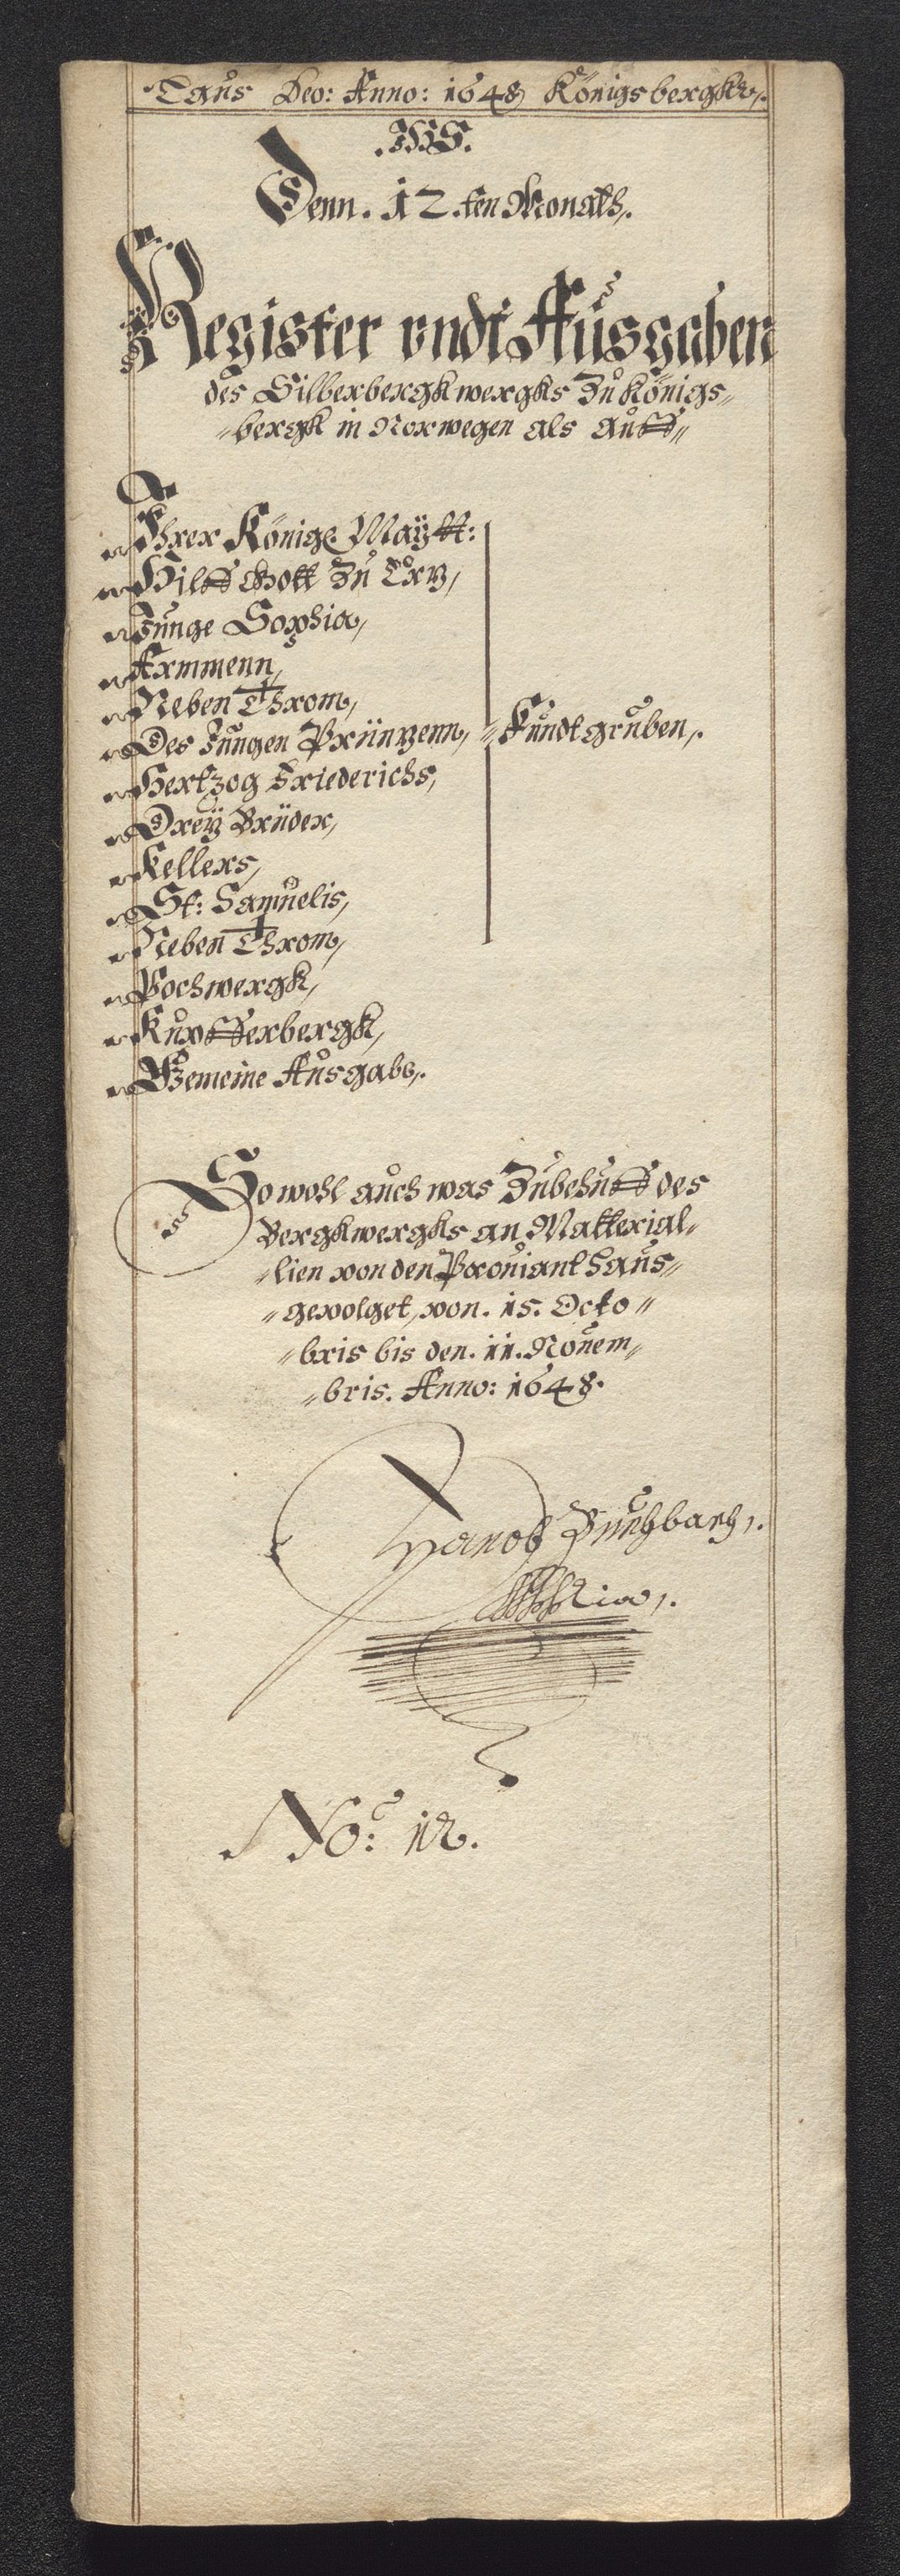 Laus Deo: Anno: 1648 Königsbergkh,.
.IHS.
Denn. 12.ten Monats,.
Register vndt Ausgaben
des Silberbergkwergks Zu Königs„
„bergk in Norwegen als auff„
Ihrer Königl Maÿtt:
Hilff Gott Zu Ertz,
Junge Sophia,
Armmenn,
Neben Throm,
Des Jungen Prüntzenn, „Fundtgruben,.
Hertzog Friederichs,
Dreÿ Brüder,
Kellers,
St: Samuelis,
Neben Throm,
Pochwergk,
Kupfferbergk,
Gemeine Ausgabe,.
So wohl auch was Zubehuff des
Bergkwergks an Matterial„
„lien von den Prouianthaus„
„gevolget, von. 15. Octo„
„bris bis den. 11. Nouem„
„bris. Anno: 1648.
No: 12.